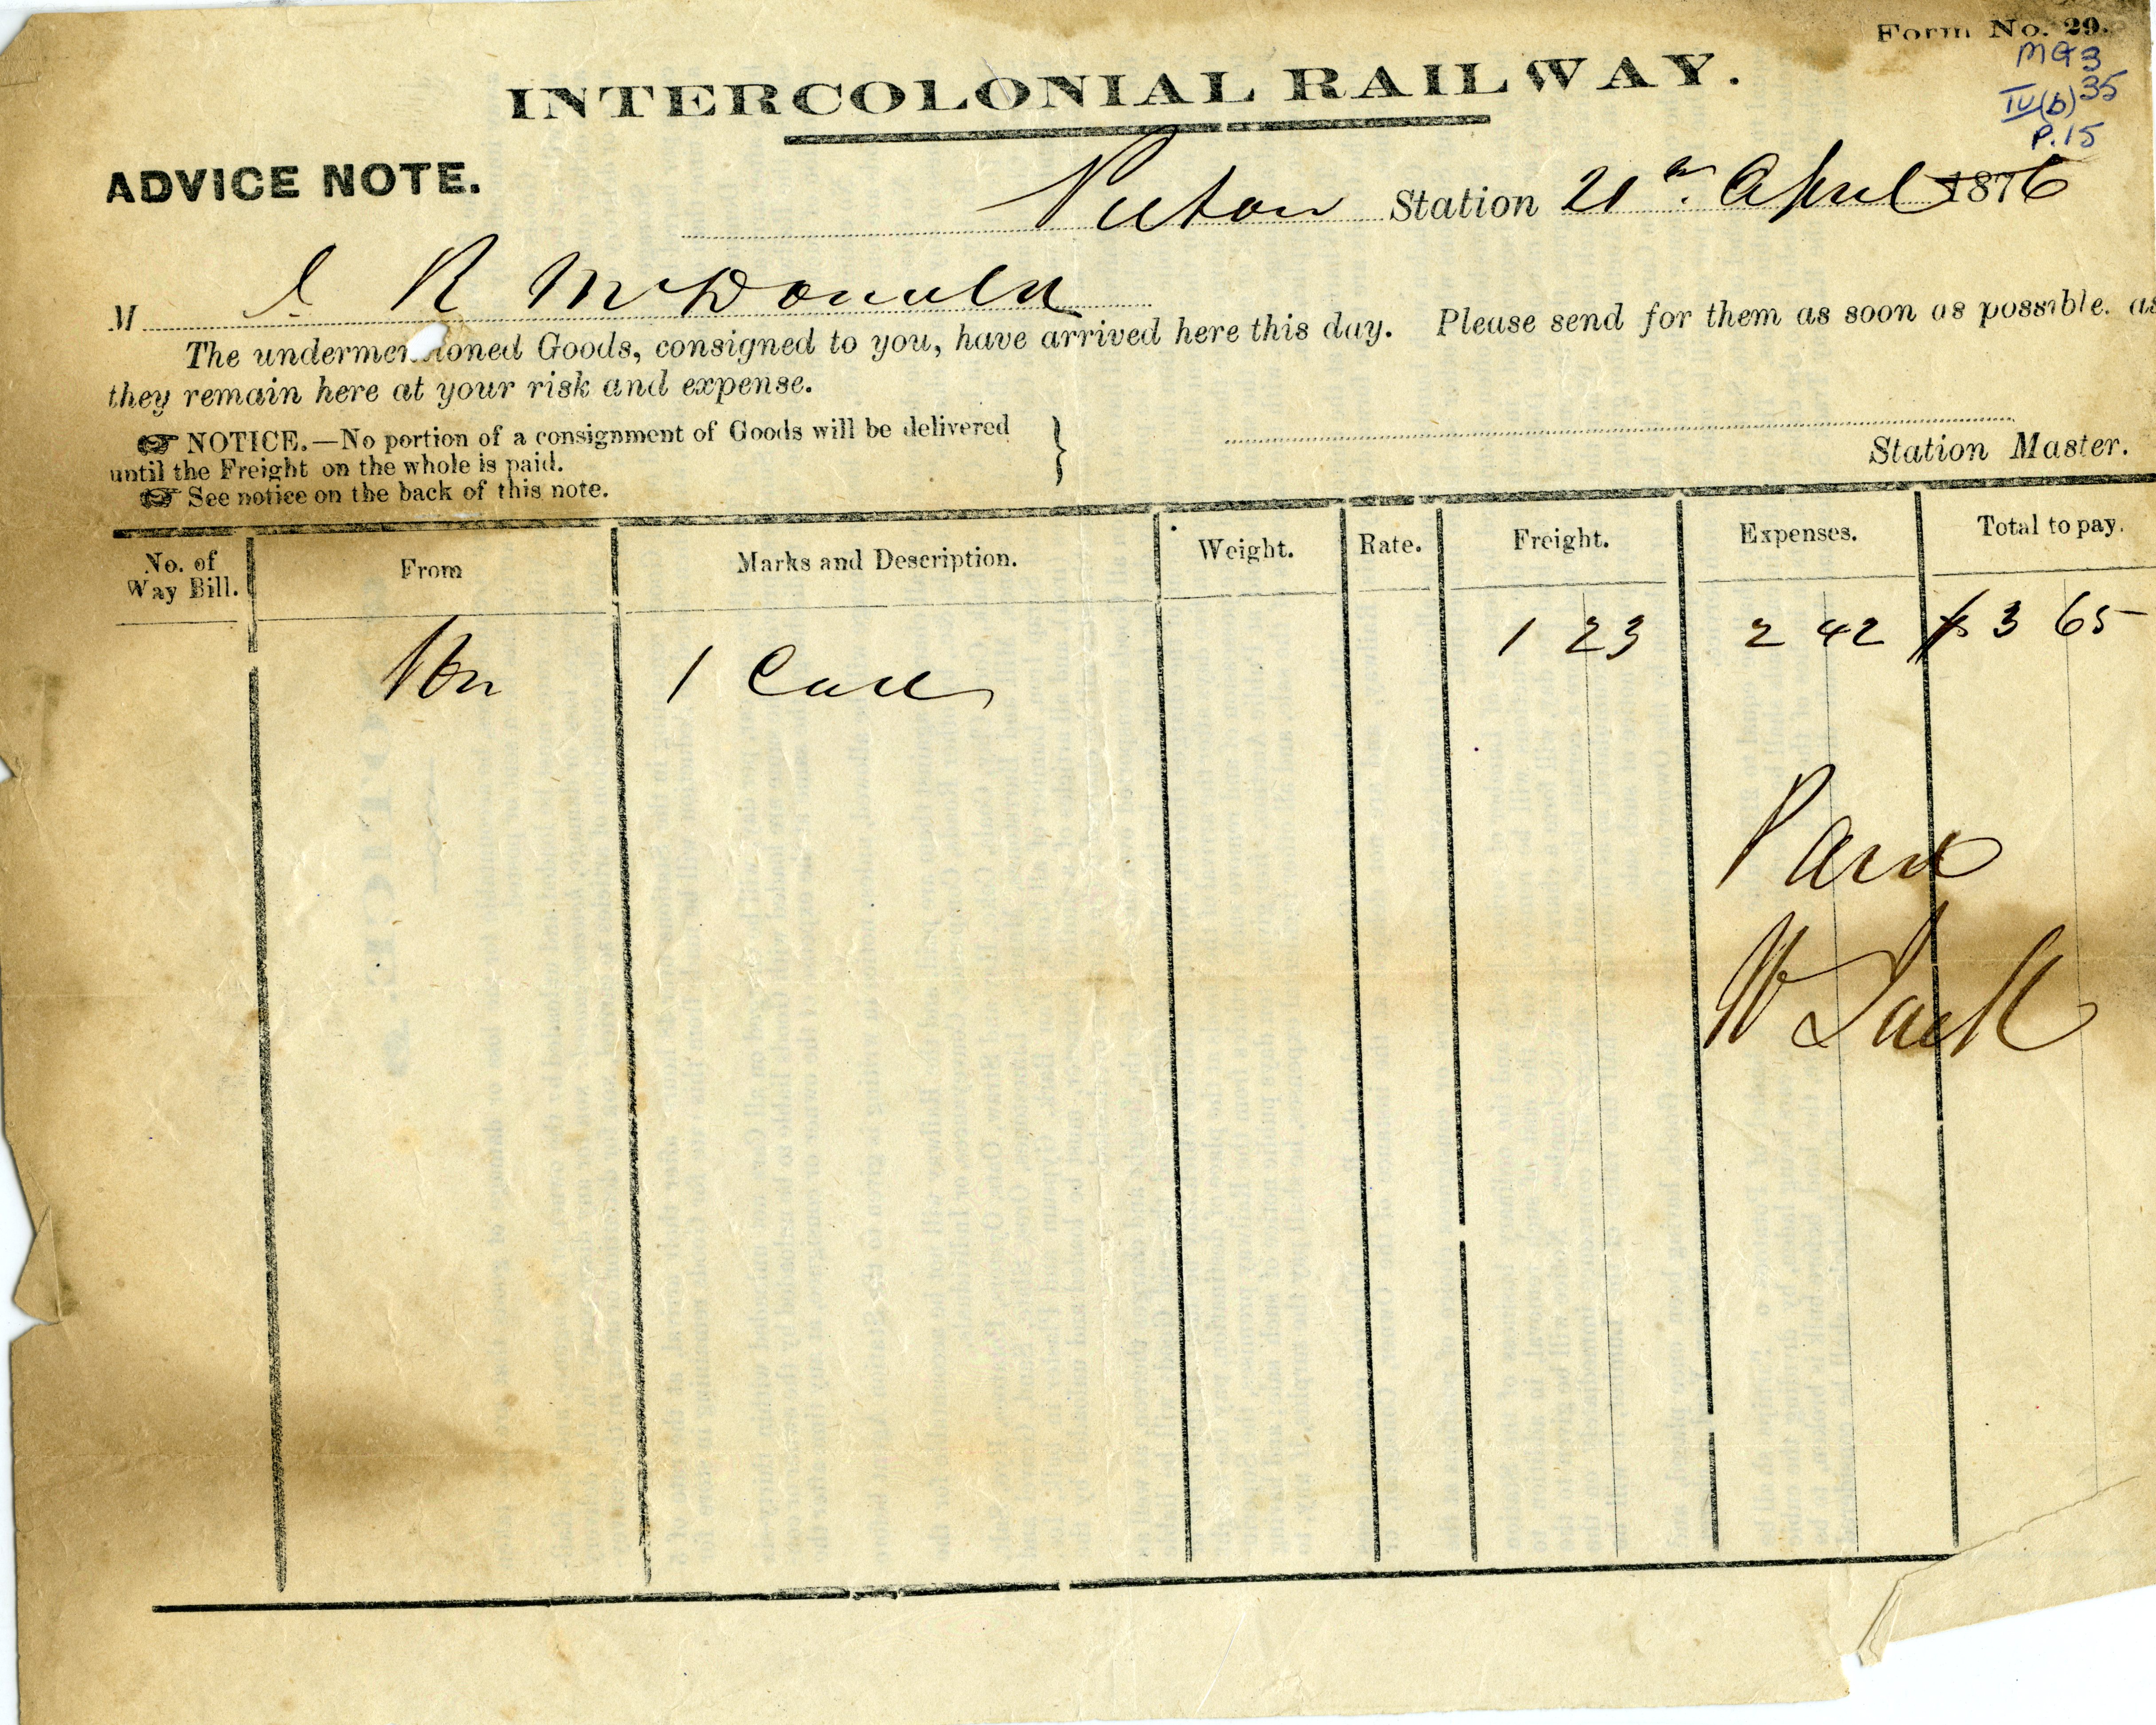 Form No. 29.
MG3
IV(b) 35
P.15
INTERCOLONIAL RAILWAY.
ADVICE NOTE.
Pictou Station 21st. April 1876
M R McDonald
The undermentioned Goods, consigned to you, have arrived here this day. Please send for them as soon as possible. as
they remain here at your risk and expense.
☞ NOTICE.—No portion of a consignment of Goods will be delivered
until the Freight on the whole is paid.
☞ See notice on the back of this note.
Station Master.
No. of Way Bill. From Marks and Description. Weight. Rate. Freight. Expenses. Total to pay.
1 23 2 42 $3 65
1
Paid
W Jack